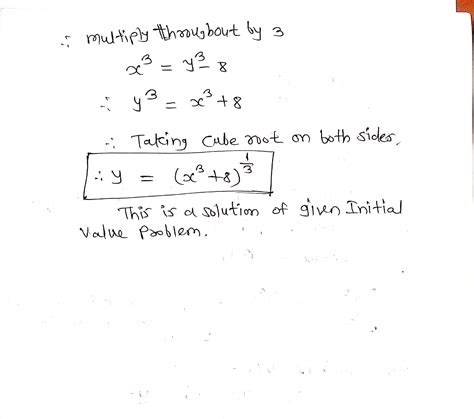 ∴ multiply throughout by 3
x³ = y³ - 8
∴ y³ = x³ + 8
∴ Taking cube root on both sides,
∴ y = (x³+8)^(1/3)
This is a solution of given Initial
Value Problem.